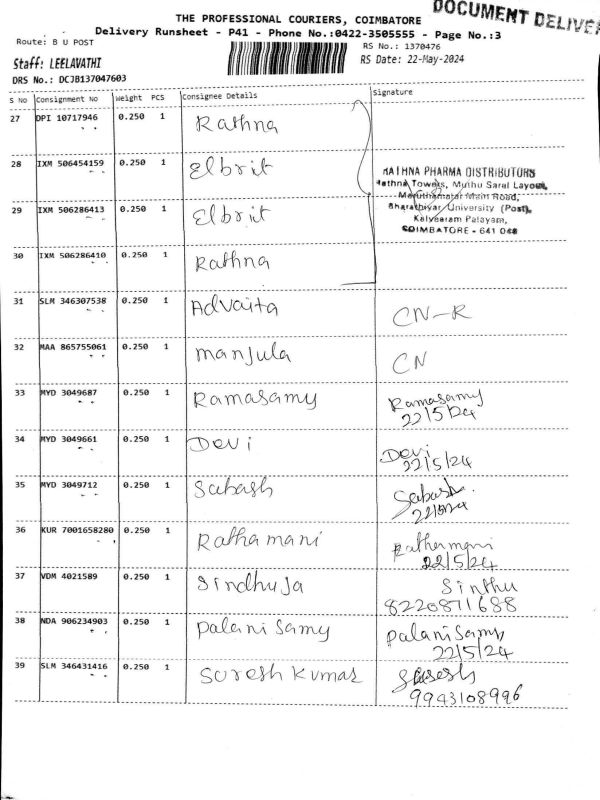 THE PROFESSIONAL COURIERS, COIMBATORE
DOCUMENT DELIVER
Delivery Runsheet - P41 - Phone No.:0422-3505555 - Page No.:3
Route: B U POST
RS No.: 1370476
Staff: LEELAVATHI
RS Date: 22-May-2024
DRS No.: DCJB137047603
S No Consignment No Weight PCS Consignee Details Signature
27 DPI 10717946 0.250 1 Rathna
28 IXM 506454159 0.250 1 Elbrit
RATHNA PHARMA DISTRIBUTORS
Rathna Towers, Muthu Saral Layout,
Maruthamalai Main Road,
Bharathiyar University (Post),
Kalveeram Palayam,
COIMBATORE - 641 046
29 IXM 506286413 0.250 1 Elbrit
30 IXM 506286410 0.250 1 Rathna
31 SLM 346307538 0.250 1 Advaita CN-R
32 MAA 865755061 0.250 1 manjula CN
33 MYD 3049687 0.250 1 Ramasamy Ramasamy
22/5/24
34 MYD 3049661 0.250 1 Devi Devi
22/5/24
35 MYD 3049712 0.250 1 Sabash Sabash
22/5/24
36 KUR 7001658280 0.250 1 Rathamani Rathamani
22/5/24
37 VDM 4021589 0.250 1 Sindhuja Sinthu
8220871688
38 NDA 906234903 0.250 1 Palanisamy Palanisamy
22/5/24
39 SLM 346431416 0.250 1 Suresh Kumar
9943108996